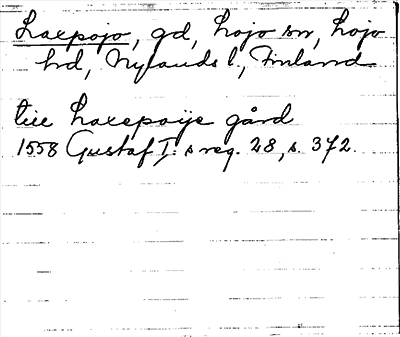 Laxpojo, gd, Pojo sn, Pojo
hd, Nylands l., Finland
till Laxepoije gård
1558 Gustaf I:s reg. 28, s. 372.